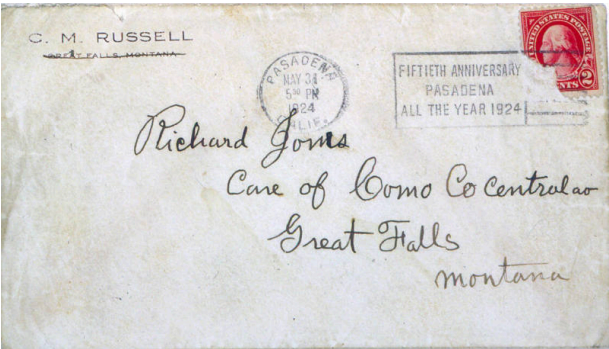 C. M. RUSSELL
GREAT FALLS, MONTANA
PASADENA
MAY 31
5 30 PM
1924
CALIF.
FIFTIETH ANNIVERSARY
PASADENA
ALL THE YEAR 1924
UNITED STATES POSTAGE
CENTS 2
Richard Jones
Care of Como Co central av
Great Falls
montana